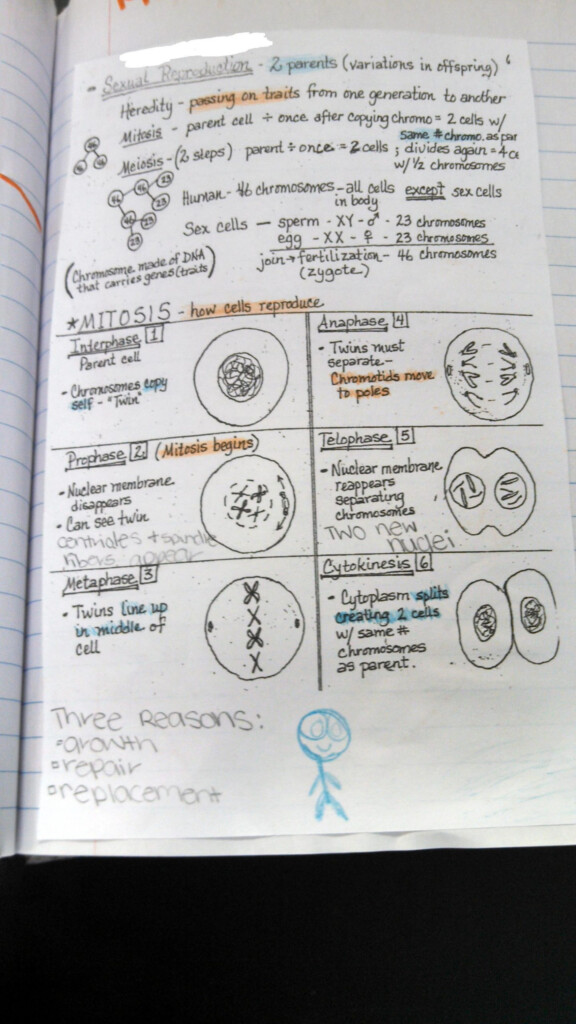 - Sexual Reproduction - 2 parents (variations in offspring)
Heredity - passing on traits from one generation to another
Mitosis - parent cell ÷ once after copying chromo = 2 cells w/
same # chromo. as par
Meiosis - (2 steps) parent ÷ once = 2 cells ; divides again = 4
w/ ½ chromosomes
46
46 46
46 46
23 23
23
23
Human - 46 chromosomes - all cells except sex cells
in body
Sex cells — sperm - XY - ♂ - 23 chromosomes
egg - XX - ♀ - 23 chromosomes
join → fertilization - 46 chromosomes
(zygote)
(Chromosome made of DNA
that carries genes (traits)
*MITOSIS - how cells reproduce
Interphase 1
Parent cell
• Chromosomes copy
self - "Twin"
Prophase 2 (Mitosis begins)
• Nuclear membrane
disappears
• Can see twin
centrioles + spindle
fibers appear
Metaphase 3
• Twins line up
in middle of
cell
Anaphase 4
• Twins must
separate -
Chromotids move
to poles
Telophase 5
• Nuclear membrane
reappears
separating
chromosomes
TWO new
nuclei
Cytokinesis 6
• Cytoplasm splits
creating 2 cells
w/ same #
chromosomes
as parent.
Three Reasons:
growth
repair
replacement